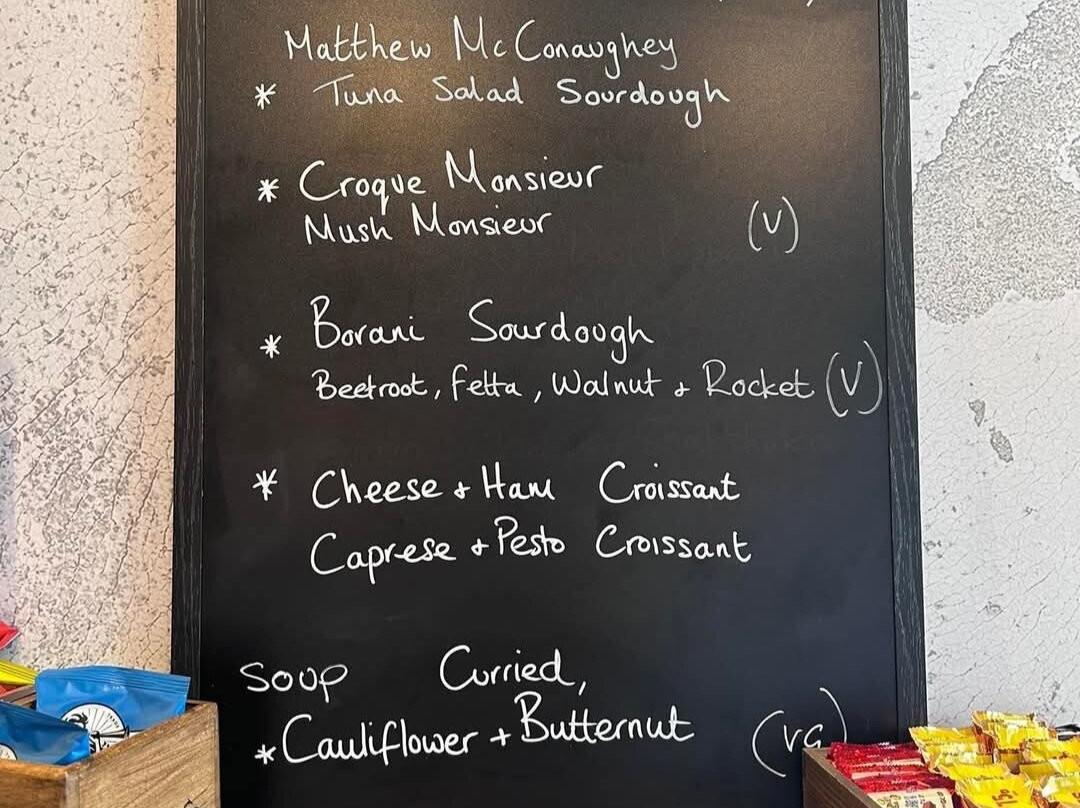 Matthew McConaughey
* Tuna Salad Sourdough
* Croque Monsieur
Mush Monsieur (V)
* Borani Sourdough
Beetroot, fetta, Walnut + Rocket (V)
* Cheese + Ham Croissant
Caprese + Pesto Croissant
Soup Curried,
* Cauliflower + Butternut (VG)